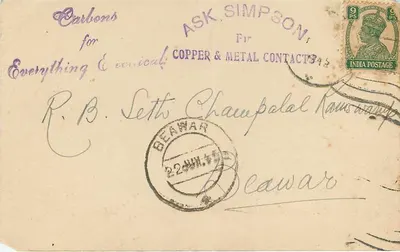 Carbons
for
Everything Electrical
ASK SIMPSON
For
COPPER & METAL CONTACTS
9 PS
INDIA POSTAGE
R. B. Seth Champalal Ramswarup
BEAWAR
Beawar